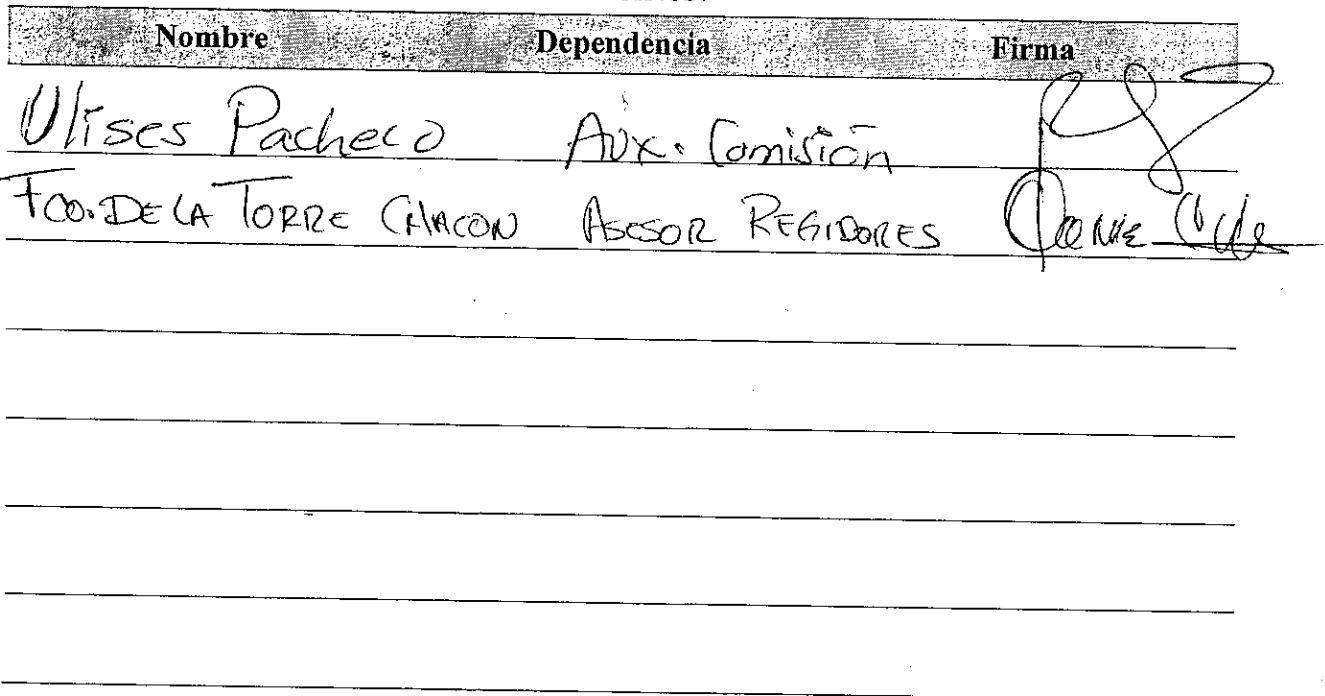 Nombre Dependencia Firma
Ulises Pacheco Aux. Comisión
Fco. DE LA TORRE CHACON ASESOR REGIDORES